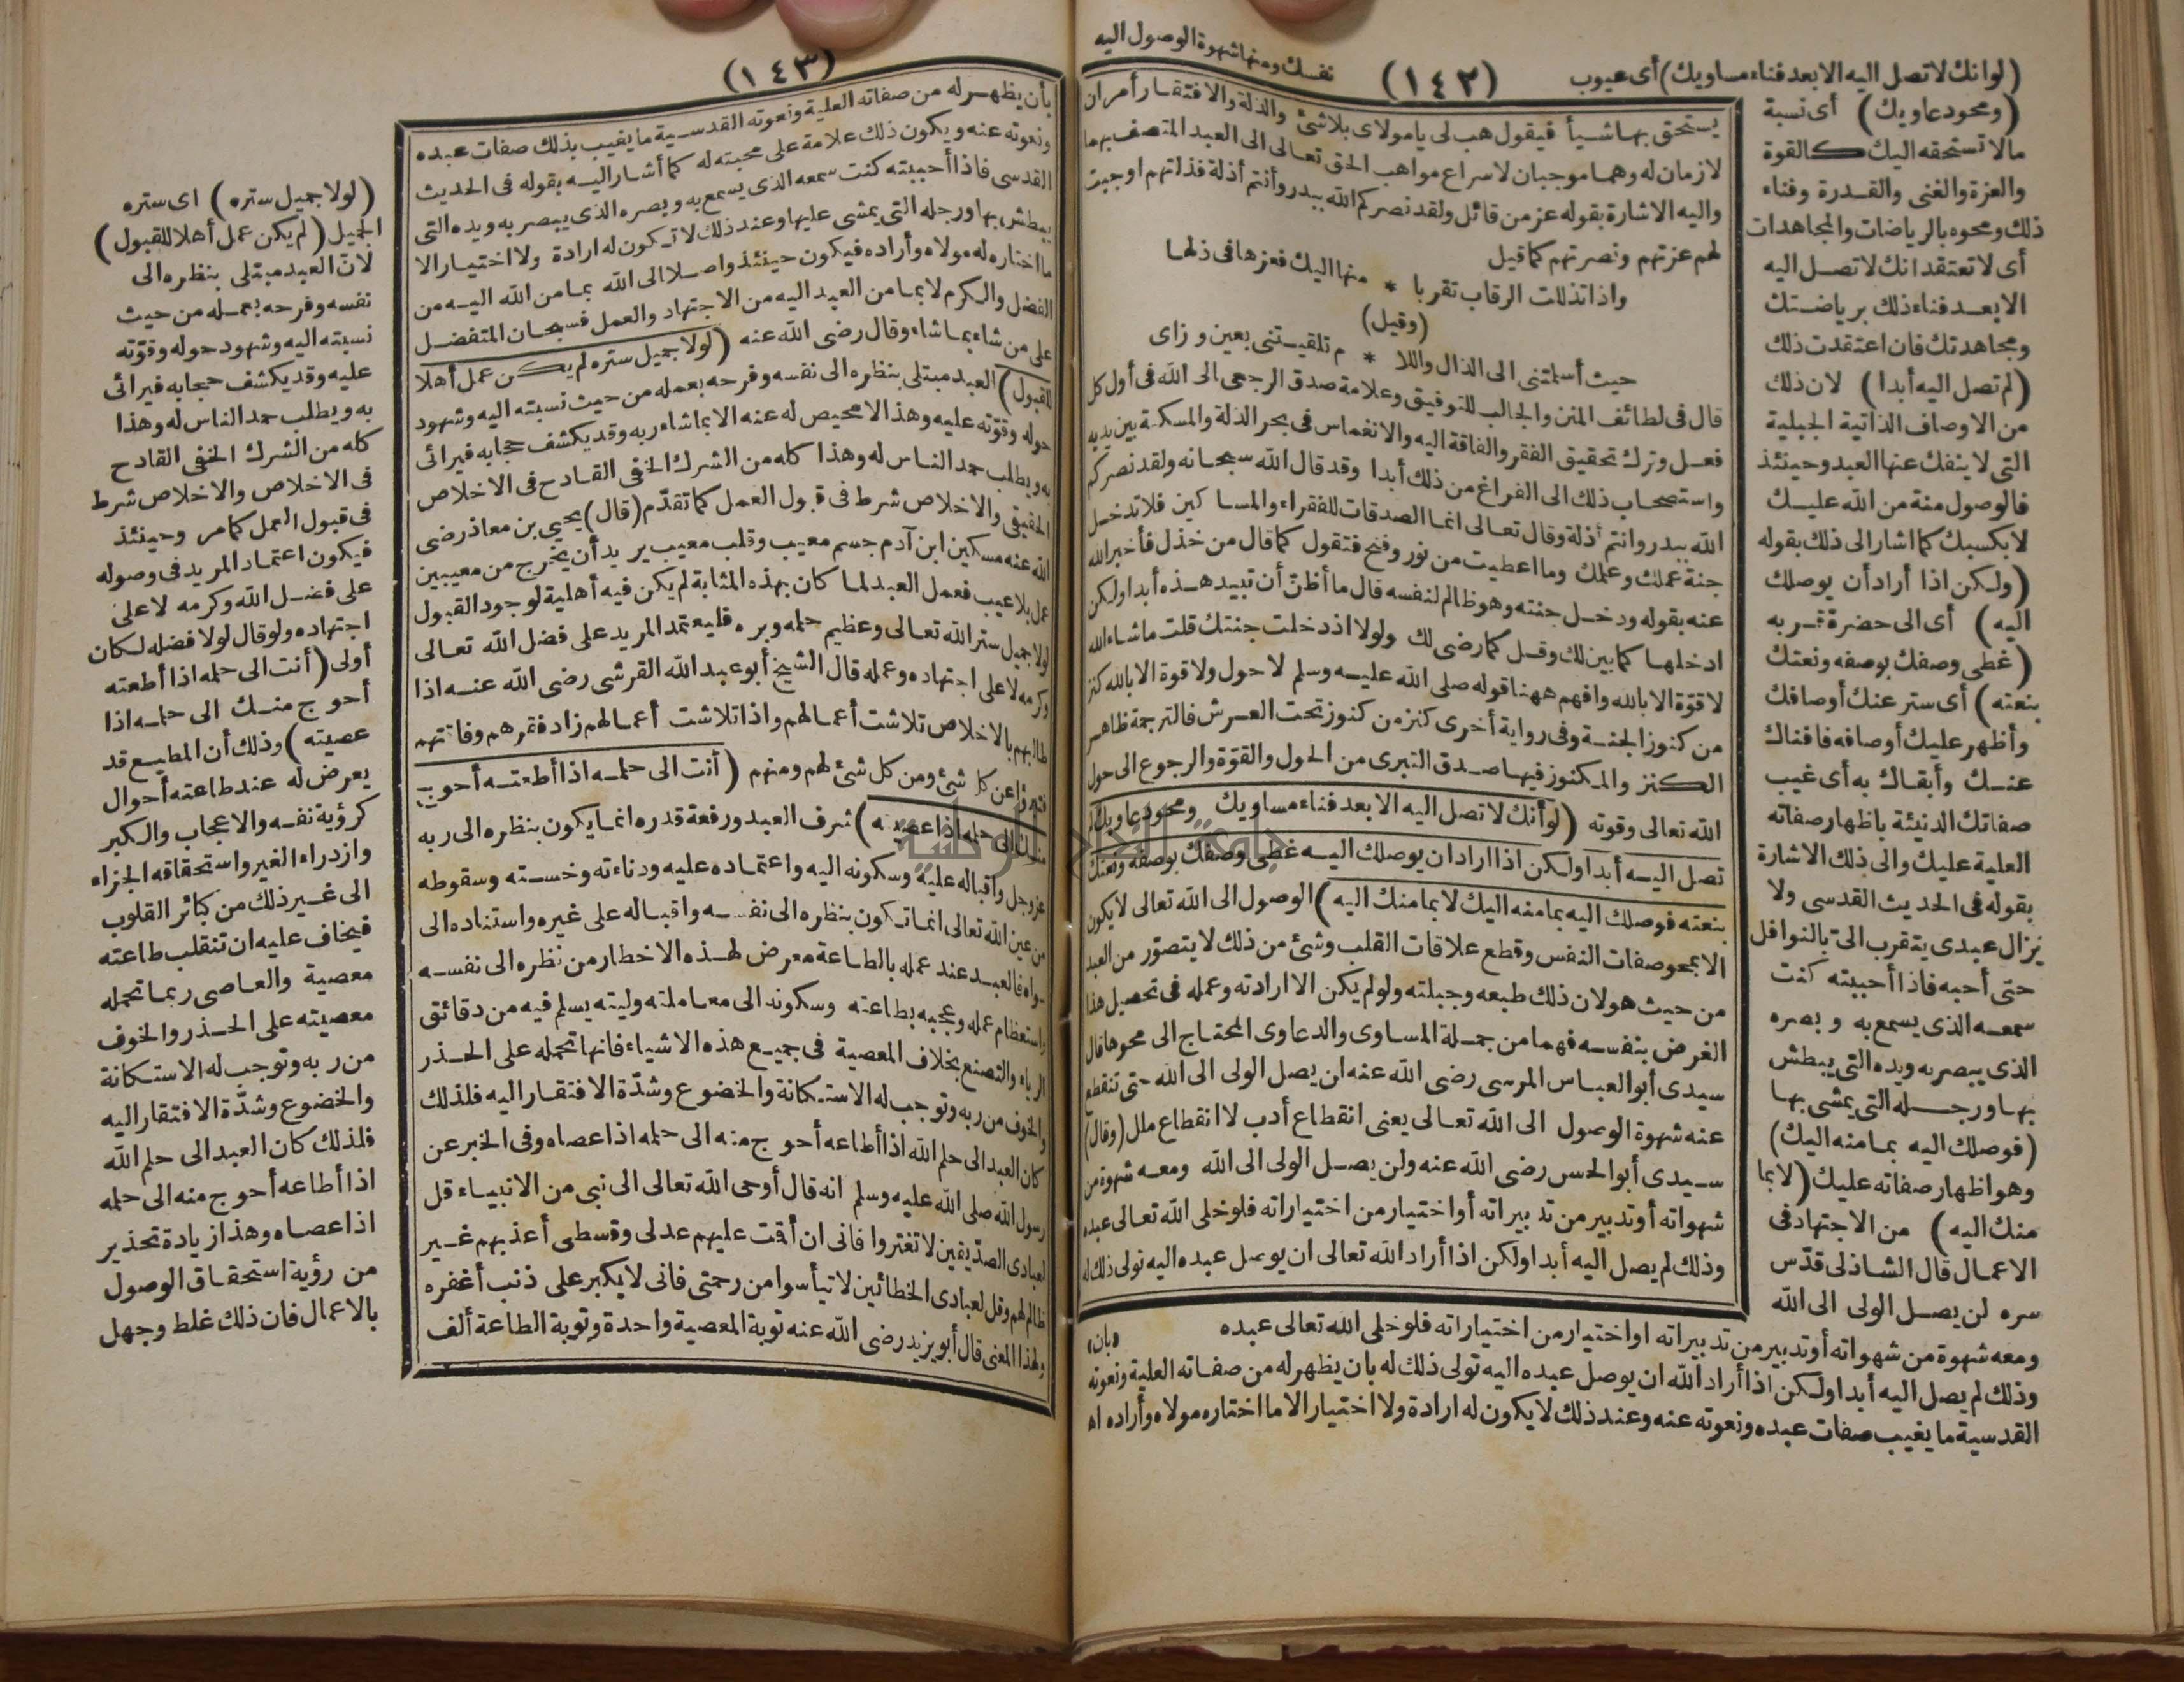 (١٤٢)
(لو انك لا تصل اليه الا بعد فناء مساويك) أى عيوب
نفسك ومنها شهوة الوصول اليه
(ومحو دعاويك) أى نسبة
ما لا تستحقه اليك كالقوة
والعزة والغنى والقدرة وفناء
ذلك ومحوه بالرياضات والمجاهدات
أى لا تعتقد انك لا تصل اليه
الا بعد فناء ذلك برياضتك
ومجاهدتك فان اعتقدت ذلك
(لم تصل اليه أبدا) لان ذلك
من الاوصاف الذاتية الجبلية
التى لا ينفك عنها العبد وحينئذ
فالوصول منة من الله عليك
لا بكسبك كما اشار الى ذلك بقوله
(ولكن اذا أراد أن يوصلك
اليه) أى الى حضرة قربه
(غطى وصفك بوصفه ونعتك
بنعته) أى ستر عنك أوصافك
وأظهر عليك أوصافه فافناك
عنك وأبقاك به أى غيب
صفاتك الدنيئة باظهار صفاته
العلية عليك والى ذلك الاشارة
بقوله فى الحديث القدسى ولا
يزال عبدى يتقرب الىّ بالنوافل
حتى أحبه فاذا أحببته كنت
سمعه الذى يسمع به وبصره
الذى يبصر به ويده التى يبطش
بها ورجله التى يمشى بها
(فوصلك اليه بما منه اليك)
وهو اظهار صفاته عليك (لا بما
منك اليه) من الاجتهاد فى
الاعمال قال الشاذلى قدّس
سره لن يصل الولى الى الله
ومعه شهوة من شهواته أو تدبير من تدبيراته او اختيار من اختياراته فلو خلى الله تعالى عبده
وذلك لم يصل اليه أبدا ولكن اذا أراد الله ان يوصل عبده اليه تولى ذلك له بان يظهر له من صفاته العلية ونعوته
القدسية ما يغيب صفات عبده ونعوته عنه وعند ذلك لا يكون له ارادة ولا اختيار الا ما اختاره مولاه وأراده اه
يستحق بها شيأ فيقول هب لى يا مولاى بلا شئ والذلة والافتقار أمران
لازمان له وهما موجبان لاسراع مواهب الحق تعالى الى العبد المتصف بهما
واليه الاشارة بقوله عز من قائل ولقد نصركم الله ببدر وأنتم أذلة فذلتهم اوجبت
لهم عزتهم ونصرتهم كما قيل
واذا تذللت الرقاب تقربا * منها اليك فعزها فى ذلها
(وقيل)
حيث أسلمتنى الى الذال واللا * م تلقيتنى بعين وزاى
قال فى لطائف المنن والجالب للتوفيق وعلامة صدق الرجعى الى الله فى أول كل
فعل وترك تحقيق الفقر والفاقة اليه والانغماس فى بحر الذلة والمسكنة بين يديه
واستصحاب ذلك الى الفراغ من ذلك أبدا وقد قال الله سبحانه ولقد نصركم
الله ببدر وانتم أذلة وقال تعالى انما الصدقات للفقراء والمساكين فلا تدخل
جنة عملك وعلمك وما اعطيت من نور وفتح فتقول كما قال من خذل فأخبر الله
عنه بقوله ودخل جنته وهو ظالم لنفسه قال ما أظنّ أن تبيد هذه أبدا ولكن
ادخلها كما بين لك وقل كما رضى لك ولولا اذ دخلت جنتك قلت ما شاء الله
لا قوّة الا بالله وافهم ههنا قوله صلى الله عليه وسلم لا حول ولا قوة الا بالله كنز
من كنوز الجنة وفى رواية أخرى كنز من كنوز تحت العرش فالترجمة ظاهر
الكنز والمكنوز فيها صدق التبرى من الحول والقوّة والرجوع الى حول
الله تعالى وقوته (لو أنك لا تصل اليه الا بعد فناء مساويك ومحو دعاويك لم
تصل اليه أبدا ولكن اذا اراد ان يوصلك اليه غطى وصفك بوصفه ونعتك
بنعته فوصلك اليه بما منه اليك لا بما منك اليه) الوصول الى الله تعالى لا يكون
الا بمحو صفات النفس وقطع علاقات القلب وشئ من ذلك لا يتصوّر من العبد
من حيث هو لان ذلك طبعه وجبلته ولو لم يكن الا ارادته وعمله فى تحصيل هذا
الغرض بنفسه فهما من جملة المساوى والدعاوى المحتاج الى محوها قال
سيدى أبو العباس المرسى رضى الله عنه ان يصل الولى الى الله حتى تنقطع
عنه شهوة الوصول الى الله تعالى يعنى انقطاع أدب لا انقطاع ملل (وقال)
سيدى أبو الحسن رضى الله عنه ولن يصل الولى الى الله ومعه شهوة من
شهواته أو تدبير من تدبيراته أو اختيار من اختياراته فلو خلى الله تعالى عبده
وذلك لم يصل اليه أبدا ولكن اذا أراد الله تعالى ان يوصل عبده اليه تولى ذلك له
«بان»
(١٤٣)
بأن يظهر له من صفاته العلية ونعوته القدسية ما يغيب بذلك صفات عبده
ونعوته عنه ويكون ذلك علامة على محبته له كما أشار اليه بقوله فى الحديث
القدسى فاذا أحببته كنت سمعه الذى يسمع به وبصره الذى يبصر به ويده التى
يبطش بها ورجله التى يمشى عليها وعند ذلك لا تكون له ارادة ولا اختيار الا
ما اختاره له مولاه وأراده فيكون حينئذ واصلا الى الله بما من الله اليه من
الفضل والكرم لا بما من العبد اليه من الاجتهاد والعمل فسبحان المتفضل
على من شاء بما شاء وقال رضى الله عنه (لولا جميل ستره لم يكن عمل أهلا
للقبول) العبد مبتلى بنظره الى نفسه وفرحه بعمله من حيث نسبته اليه وشهود
حوله وقوّته عليه وهذا لا محيص له عنه الا بما شاء ربه وقد يكشف حجابه فيرائى
به ويطلب حمد الناس له وهذا كله من الشرك الخفى القادح فى الاخلاص
الحقيقى والاخلاص شرط فى قبول العمل كما تقدّم (قال) يحيى بن معاذ رضى
الله عنه مسكين ابن آدم جسم معيب وقلب معيب يريد أن يخرج من معيبين
عملا بلا عيب فعمل العبد لما كان بهذه المثابة لم يكن فيه أهلية لوجود القبول
لولا جميل ستر الله تعالى وعظيم حلمه وبره فليعتمد المريد على فضل الله تعالى
وكرمه لا على اجتهاده وعمله قال الشيخ أبو عبد الله القرشى رضى الله عنه اذا
طالبهم بالاخلاص تلاشت أعمالهم واذا تلاشت أعمالهم زاد فقرهم وفاقتهم
فتبرؤا عن كل شئ ومن كل شئ لهم ومنهم (أنت الى حلمه اذا أطعته أحوج
منك الى حلمه اذا عصيته) شرف العبد ورفعة قدره انما يكون بنظره الى ربه
عز وجل واقباله عليه وسكونه اليه واعتماده عليه ودناءته وخسته وسقوطه
من عين الله تعالى انما تكون بنظره الى نفسه واقباله على غيره واستناده الى
سواه فالعبد عند عمله بالطاعة معرض لهذه الاخطار من نظره الى نفسه
واستعظام عمله وعجبه بطاعته وسكونه الى معاملته وليته يسلم فيه من دقائق
الرياء والتصنع بخلاف المعصية فى جميع هذه الاشياء فانها تحمله على الحذر
والخوف من ربه وتوجب له الاستكانة والخضوع وشدّة الافتقار اليه فلذلك
كان العبد الى حلم الله اذا أطاعه أحوج منه الى حلمه اذا عصاه وفى الخبر عن
رسول الله صلى الله عليه وسلم انه قال أوحى الله تعالى الى نبى من الانبياء قل
لعبادى الصدّيقين لا تغتروا فانى ان أقت عليهم عدلى وقسطى أعذبهم غير
ظالم لهم وقل لعبادى الخطائين لا تيأسوا من رحمتى فانى لا يكبر على ذنب أغفره
ولهذا المعنى قال أبو يزيد رضى الله عنه توبة المعصية واحدة وتوبة الطاعة ألف
(لولا جميل ستره) اى ستره
الجميل (لم يكن عمل أهلا للقبول)
لانّ العبد مبتلى بنظره الى
نفسه وفرحه بعمله من حيث
نسبته اليه وشهود حوله وقوّته
عليه وقد يكشف حجابه فيرائى
به ويطلب حمد الناس له وهذا
كله من الشرك الخفى القادح
فى الاخلاص والاخلاص شرط
فى قبول العمل كما مر وحينئذ
فيكون اعتماد المريد فى وصوله
على فضل الله وكرمه لا على
اجتهاده ولو قال لولا فضله لكان
أولى (أنت الى حلمه اذا أطعته
أحوج منك الى حلمه اذا
عصيته) وذلك أن المطيع قد
يعرض له عند طاعته أحوال
كرؤية نفسه والاعجاب والكبر
وازدراء الغير واستحقاقه الجزاء
الى غير ذلك من كبائر القلوب
فيخاف عليه ان تنقلب طاعته
معصية والعاصى ربما تحمله
معصيته على الحذر والخوف
من ربه وتوجب له الاستكانة
والخضوع وشدّة الافتقار اليه
فلذلك كان العبد الى حلم الله
اذا أطاعه أحوج منه الى حلمه
اذا عصاه وهذا زيادة تحذير
من رؤية استحقاق الوصول
بالاعمال فان ذلك غلط وجهل
جامعة النجاح الوطنية